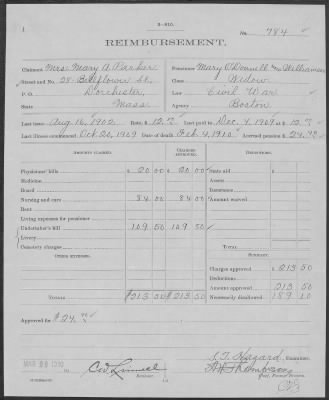 3-810.
No. 784
REIMBURSEMENT.
Claimant Mrs. Mary A. Parker
Street and No. 28 Bellflower St.,
P. O. Dorchester,
State Mass
Pensioner Mary O'Donnell Williams
Class Widow
Law Civil War
Agency Boston
Last issue Aug 16, 1902, Date $ 12.00 Last paid to Dec. 4, 1909 at $ 12.00
Last illness commenced Oct 20, 1909 Date of death Feb 4, 1910 Accrued pension $ 24.00
AMOUNTS CLAIMED. CHARGES APPROVED.
Physicians' bills $ 20 00 $ 20 00
Medicine
Board
Nursing and care 84 00 84 00
Rent
Living expenses for pensioner
Undertaker's bill 109 50 109 50
Livery
Cemetery charges
OTHER EXPENSES.
Totals $ 213 50 $ 213 50
State aid $
Assets
Insurance
Amount waived
Total $
SUMMARY.
Charges approved $ 213 50
Deductions
Amount approved 213 50
Necessarily disallowed 189 10
Approved for $ 24.00
MAR 1910
Reviewer.
S. T. Hazard, Examiner.
A. W. Thompson